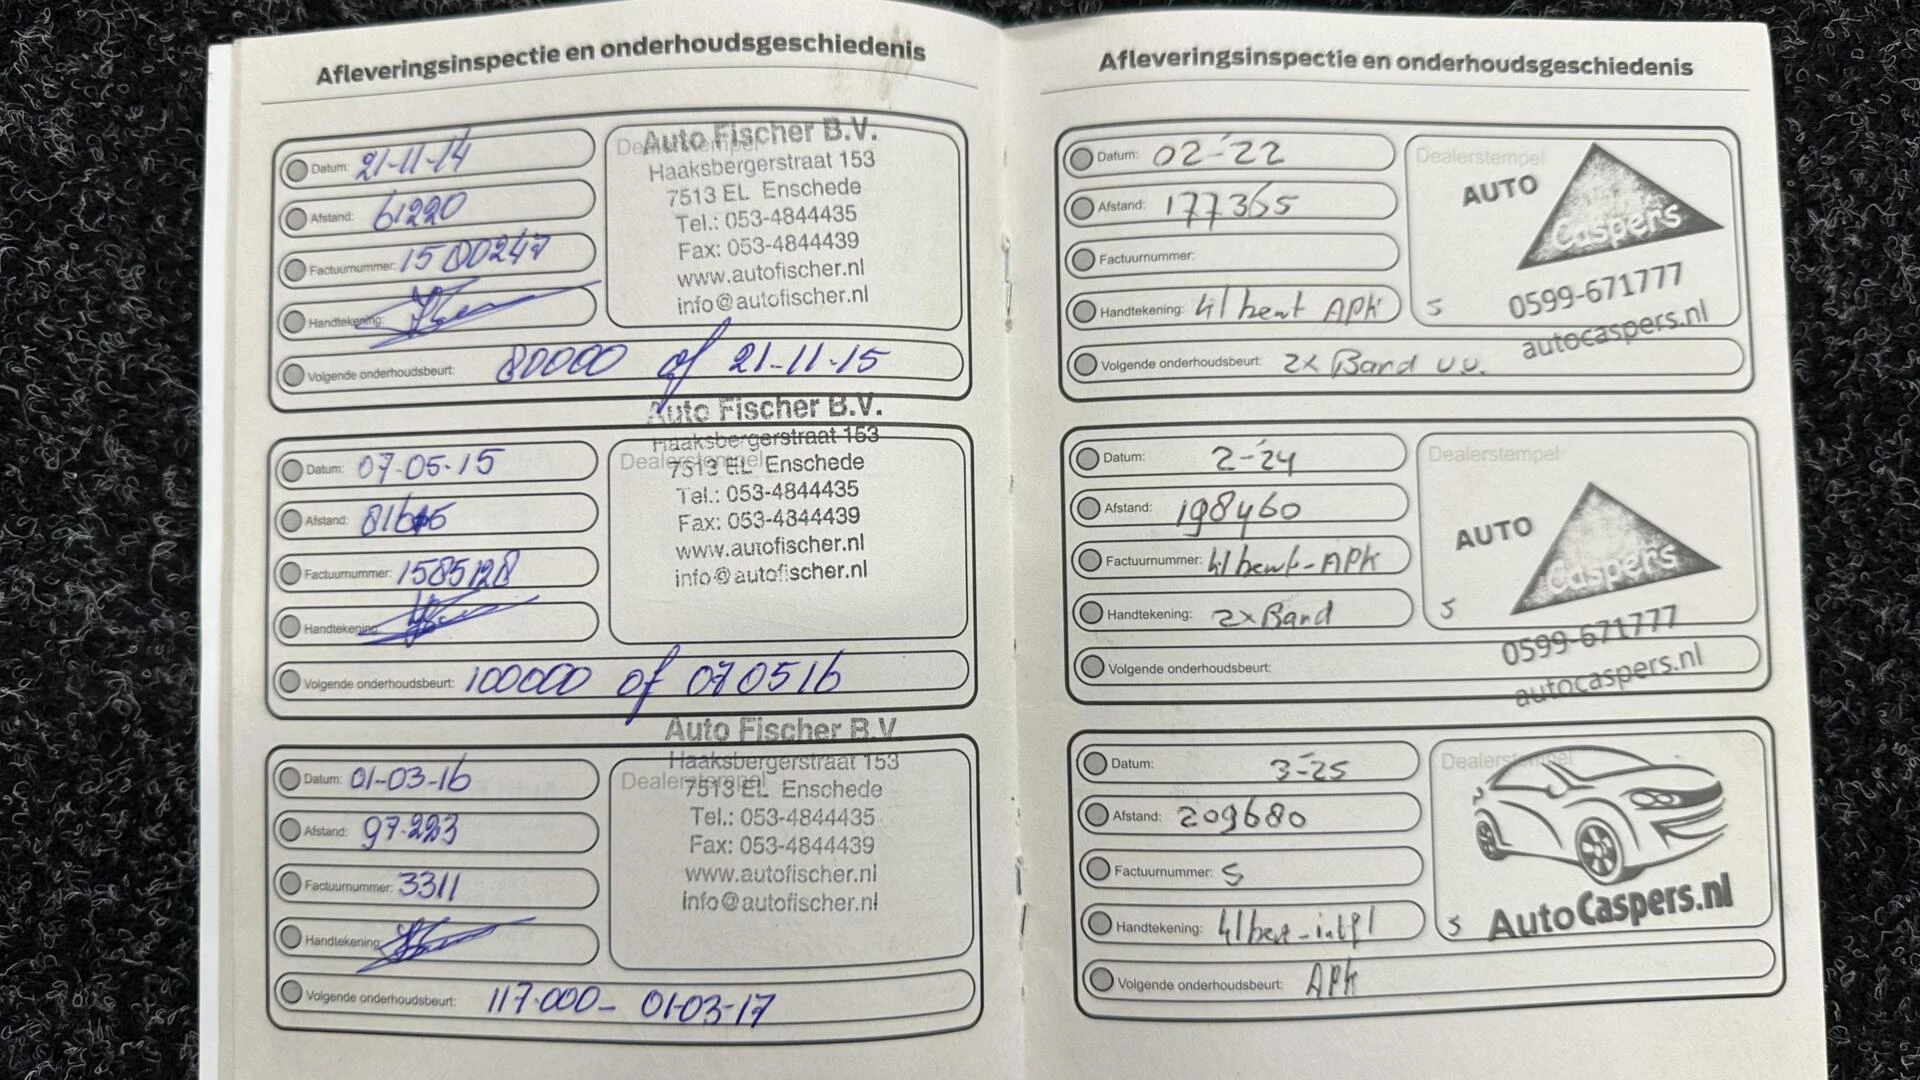 Afleveringsinspectie en onderhoudsgeschiedenis
Datum: 21-11-14
Afstand: 61220
Factuurnummer: 1500247
Handtekening:
Volgende onderhoudsbeurt: 80000 of 21-11-15
Dealerstempel
Auto Fischer B.V.
Haaksbergerstraat 153
7513 EL Enschede
Tel.: 053-4844435
Fax: 053-4844439
www.autofischer.nl
info@autofischer.nl
Datum: 07-05-15
Afstand:
Factuurnummer: 1585128
Handtekening:
Volgende onderhoudsbeurt: 100000 of 070516
Dealerstempel
Auto Fischer B.V.
Haaksbergerstraat 153
7513 EL Enschede
Tel.: 053-4844435
Fax: 053-4844439
www.autofischer.nl
info@autofischer.nl
Datum: 01-03-16
Afstand: 97.223
Factuurnummer: 3311
Handtekening:
Volgende onderhoudsbeurt: 117.000- 01-03-17
Dealerstempel
Auto Fischer B.V.
Haaksbergerstraat 153
7513 EL Enschede
Tel.: 053-4844435
Fax: 053-4844439
www.autofischer.nl
info@autofischer.nl
Afleveringsinspectie en onderhoudsgeschiedenis
Datum: 02-'22
Afstand: 177365
Factuurnummer:
Handtekening: APK
Volgende onderhoudsbeurt: 2x Band v.v.
Dealerstempel
AUTO
Caspers
S
0599-671777
autocaspers.nl
Datum: 2-'24
Afstand: 198460
Factuurnummer: APK
Handtekening: 2x Band
Volgende onderhoudsbeurt:
Dealerstempel
AUTO
Caspers
S
0599-671777
autocaspers.nl
Datum: 3-'25
Afstand: 209680
Factuurnummer: S
Handtekening:
Volgende onderhoudsbeurt: APK
Dealerstempel
S
AutoCaspers.nl